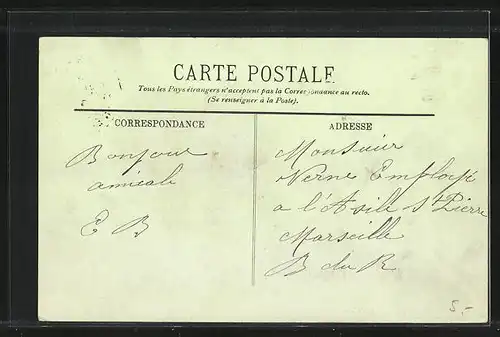 CARTE POSTALE
Tous les Pays étrangers n'acceptent pas la Correspondance au recto.
(Se renseigner à la Poste).
CORRESPONDANCE
ADRESSE
Bonjour
amicale
E B
Monsieur
Verne Employé
a l'Asile St Pierre
Marseille
B du R
5.-